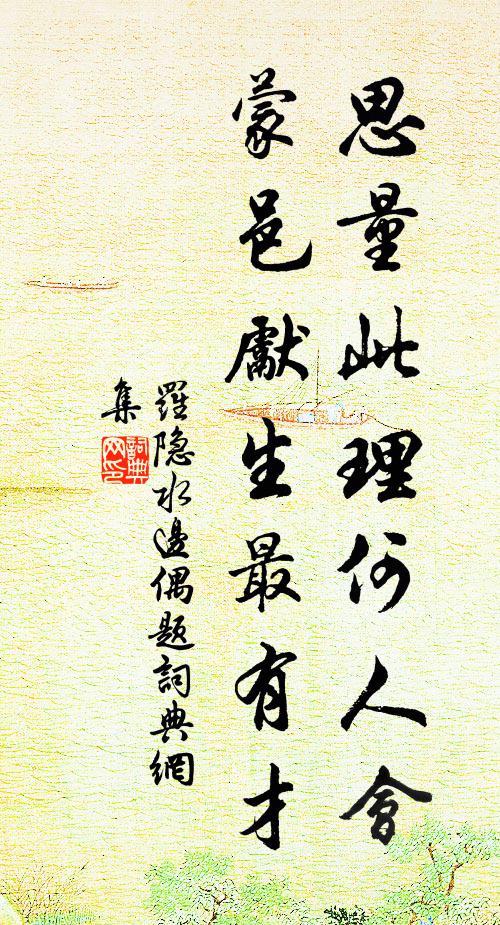 思量此理何人會
蒙邑獻生最有才
羅隐水邊偶题詞典網
集
詞典
网印